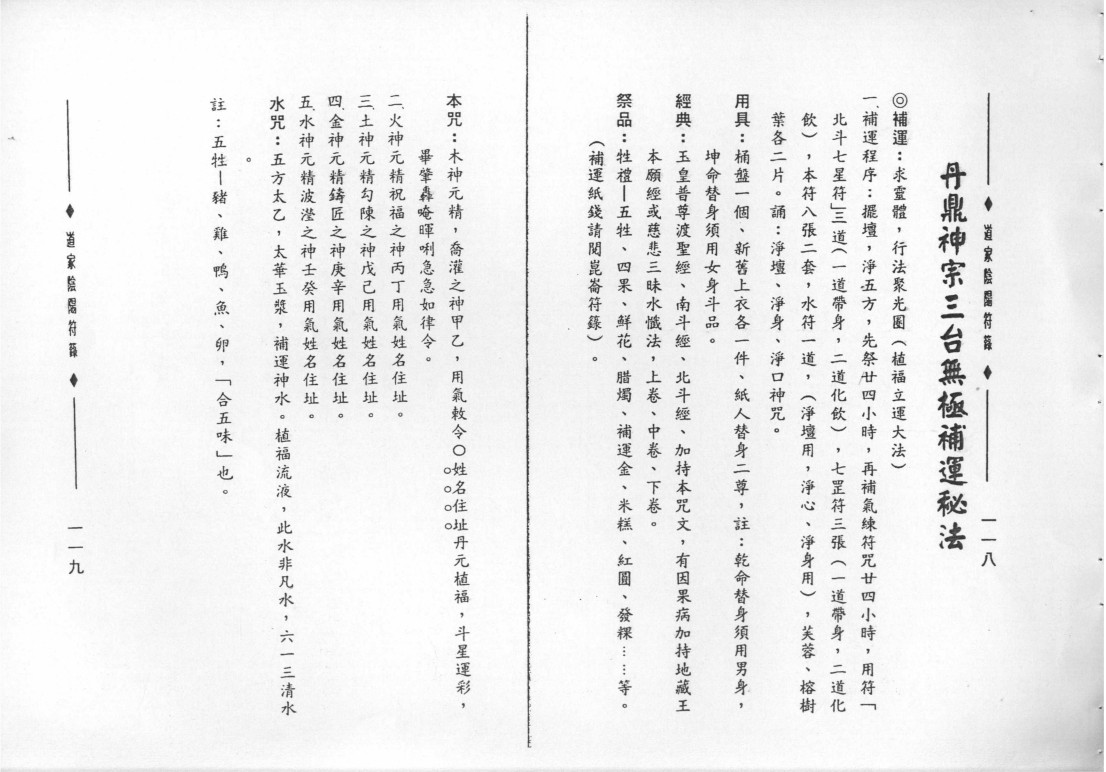 ◆ 道家陰陽符籙 ◆ 一一八
丹鼎神宗三台無極補運秘法
◎補運：求靈體，行法聚光圈（植福立運大法）
一、補運程序：擺壇，淨五方，先祭廿四小時，再補氣練符咒廿四小時，用符「
北斗七星符」三道（一道帶身，二道化飲），七罡符三張（一道帶身，二道化
飲），本符八張二套，水符一道，（淨壇用，淨心、淨身用），芙蓉、榕樹
葉各二片。誦：淨壇、淨身、淨口神咒。
用具：桶盤一個、新舊上衣各一件、紙人替身二尊，註：乾命替身須用男身，
坤命替身須用女身斗品。
經典：玉皇普尊渡聖經、南斗經、北斗經、加持本咒文，有因果病加持地藏王
本願經或慈悲三昧水懺法，上卷、中卷、下卷。
祭品：牲禮—五牲、四果、鮮花、腊燭、補運金、米糕、紅圓、發粿……等。
（補運紙錢請閱崑崙符籙）。
本咒：木神元精，喬灌之神甲乙，用氣敕令○姓名住址丹元植福，斗星運彩，
○○○○
畢肇轟唵暉唎急急如律令。
二、火神元精祝福之神丙丁用氣姓名住址。
三、土神元精勾陳之神戊己用氣姓名住址。
四、金神元精鑄匠之神庚辛用氣姓名住址。
五、水神元精波瀅之神壬癸用氣姓名住址。
水咒：五方太乙，太華玉漿，補運神水。植福流液，此水非凡水，六一三清水
。
註：五牲—豬、雞、鴨、魚、卵，「合五味」也。
◆ 道家陰陽符籙 ◆ 一一九